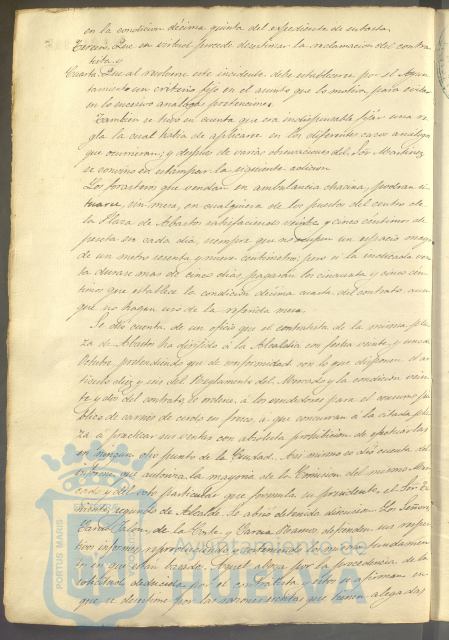 en la condicion décima quinta del expediente de subasta.
Tercero. Que en virtud procede desestimar la reclamacion del contra-
tista; y
Cuarta. Que al resolverse este incidente debe establecerse por el Ayun-
tamiento un criterio fijo en el asunto que lo motiva, para evitar
en lo sucesivo análogas pretenciones.
Tambien se tuvo en cuenta que era indispensable fijar una re-
gla la cual habia de aplicarse en los diferentes casos análogos
que ocurrieran; y despues de varias observaciones del Sor. Martinez
se convino en estampar la siguiente adicion.
Los forasteros que vendan en ambulancia chacina, podran si-
tuarse, sin mesa, en cualquiera de los puestos del centro de
la Plaza de Abastos satisfaciendo veinte y cinco céntimos de
peseta en cada dia, siempre que no ocupen un espacio mayor
de un metro sesenta y nueve centimetros; pero si la indicada ven-
ta durase mas de cinco dias pagarán los cincuenta y cinco cén-
timos que establece la condicion décima cuarta del contrato, aun-
que no hagan uso de la referida mesa.
Se dió cuenta de un oficio que el contratista de la misma pla-
za de Abastos ha dirijido á la Alcaldia con fecha veinte y uno de
Octubre, pretendiendo que de conformidad con lo que disponen el ar-
ticulo diez y seis del Reglamento del Mercado y la condicion vein-
te y dos del contrato se ordene, á los vendedores para el consumo pu-
blico de carnes de cerdo en fresco, á que concurran á la citada pla-
za á practicar sus ventas con absoluta prohibicion de
en ningun otro punto de la Ciudad. Asi mismo se dió cuenta del
informe que autoriza la mayoria de la Comision del mismo Mer-
cado y del voto particular que formula su presidente, el Sor.
segundo de Alcalde. Se abrió detenida discusion. Los Señores
Garcia de la Corte y Garcia Ramos defienden sus respec-
tivos informes, reproduciendo y sosteniendo los mismos fundamen-
tos en que están basados. Aquel aboga por la procedencia de la
solicitud deducida por el contratista y estos se afirman en
que se desestime por las razones escritas que tienen alegadas
PORTUS MARIS
Ayuntamiento de
HUELVA